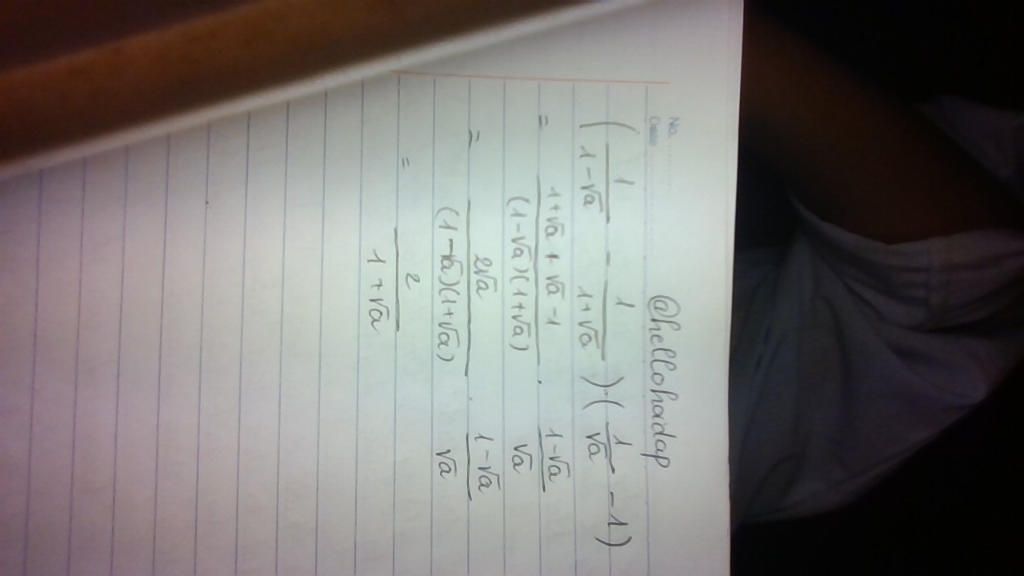 No.
Date
@hellohadap
( 1/(1-√a) - 1/(1+√a) ) · ( 1/√a - 1 )
= (1+√a+√a-1)/((1-√a)(1+√a)) · (1-√a)/√a
= 2√a/((1-√a)(1+√a)) · (1-√a)/√a
= 2/(1+√a)